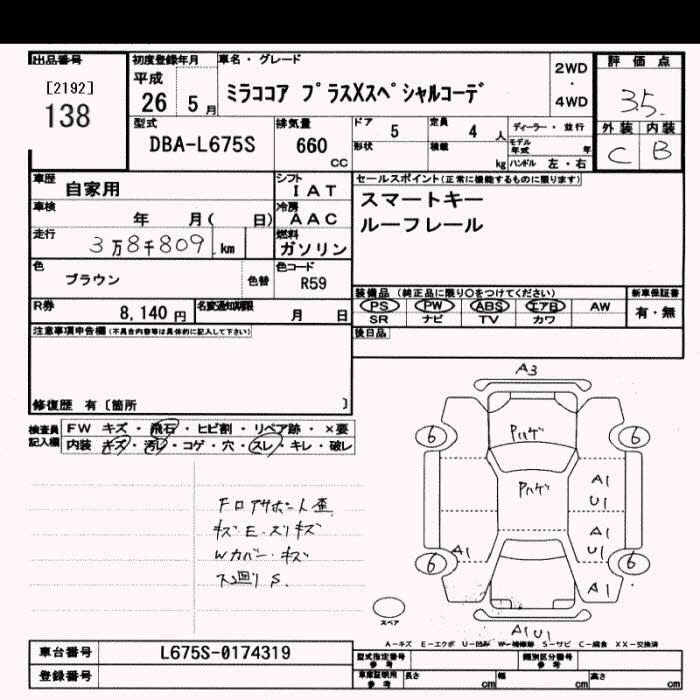 出品番号
[2192]
138
初度登録年月
平成
26 5月
車名・グレード
ミラココア プラスXスペシャルコーデ
2WD
・
4WD
評価点
3.5
外装 内装
C B
型式
DBA-L675S
排気量
660
CC
ドア 5
定員 4 人
ディーラー・並行
形状
積載 kg
モデル年式 年
ハンドル 左・右
車歴
自家用
シフト
IAT
車検
年 月( 日)
冷房
AAC
走行
3万8千809 km
燃料
ガソリン
色
ブラウン
色替
色コード
R59
R券
8,140円
名変通知期限
月 日
セールスポイント(正常に機能するものに限ります)
スマートキー
ルーフレール
装備品(純正品に限り○をつけてください)
PS PW ABS エアB AW
SR ナビ TV カワ
新車保証書
有・無
後日品
注意事項申告欄(不具合内容等は具体的に記入して下さい)
修復歴 有〔箇所 〕
検査員記入欄
FW キズ・飛石・ヒビ割・リペア跡・×要
内装 キズ・汚レ・コゲ・穴・スレ・キレ・破レ
キズ・E・スリキズ
Wカバー・キズ
ス廻りS.
A3
Pハゲ
6 6
Pハゲ
A1
U1
A1
U1
A1
6 6
A1
A1 U1
スペア
A−キズ E−エクボ U−凹み W−補修跡 S−サビ C−腐食 XX−交換済
車台番号 L675S-0174319
登録番号
型式指定番号 参考
類別区分番号 参考
車庫証明用 参考
長さ cm 幅 cm 高さ cm